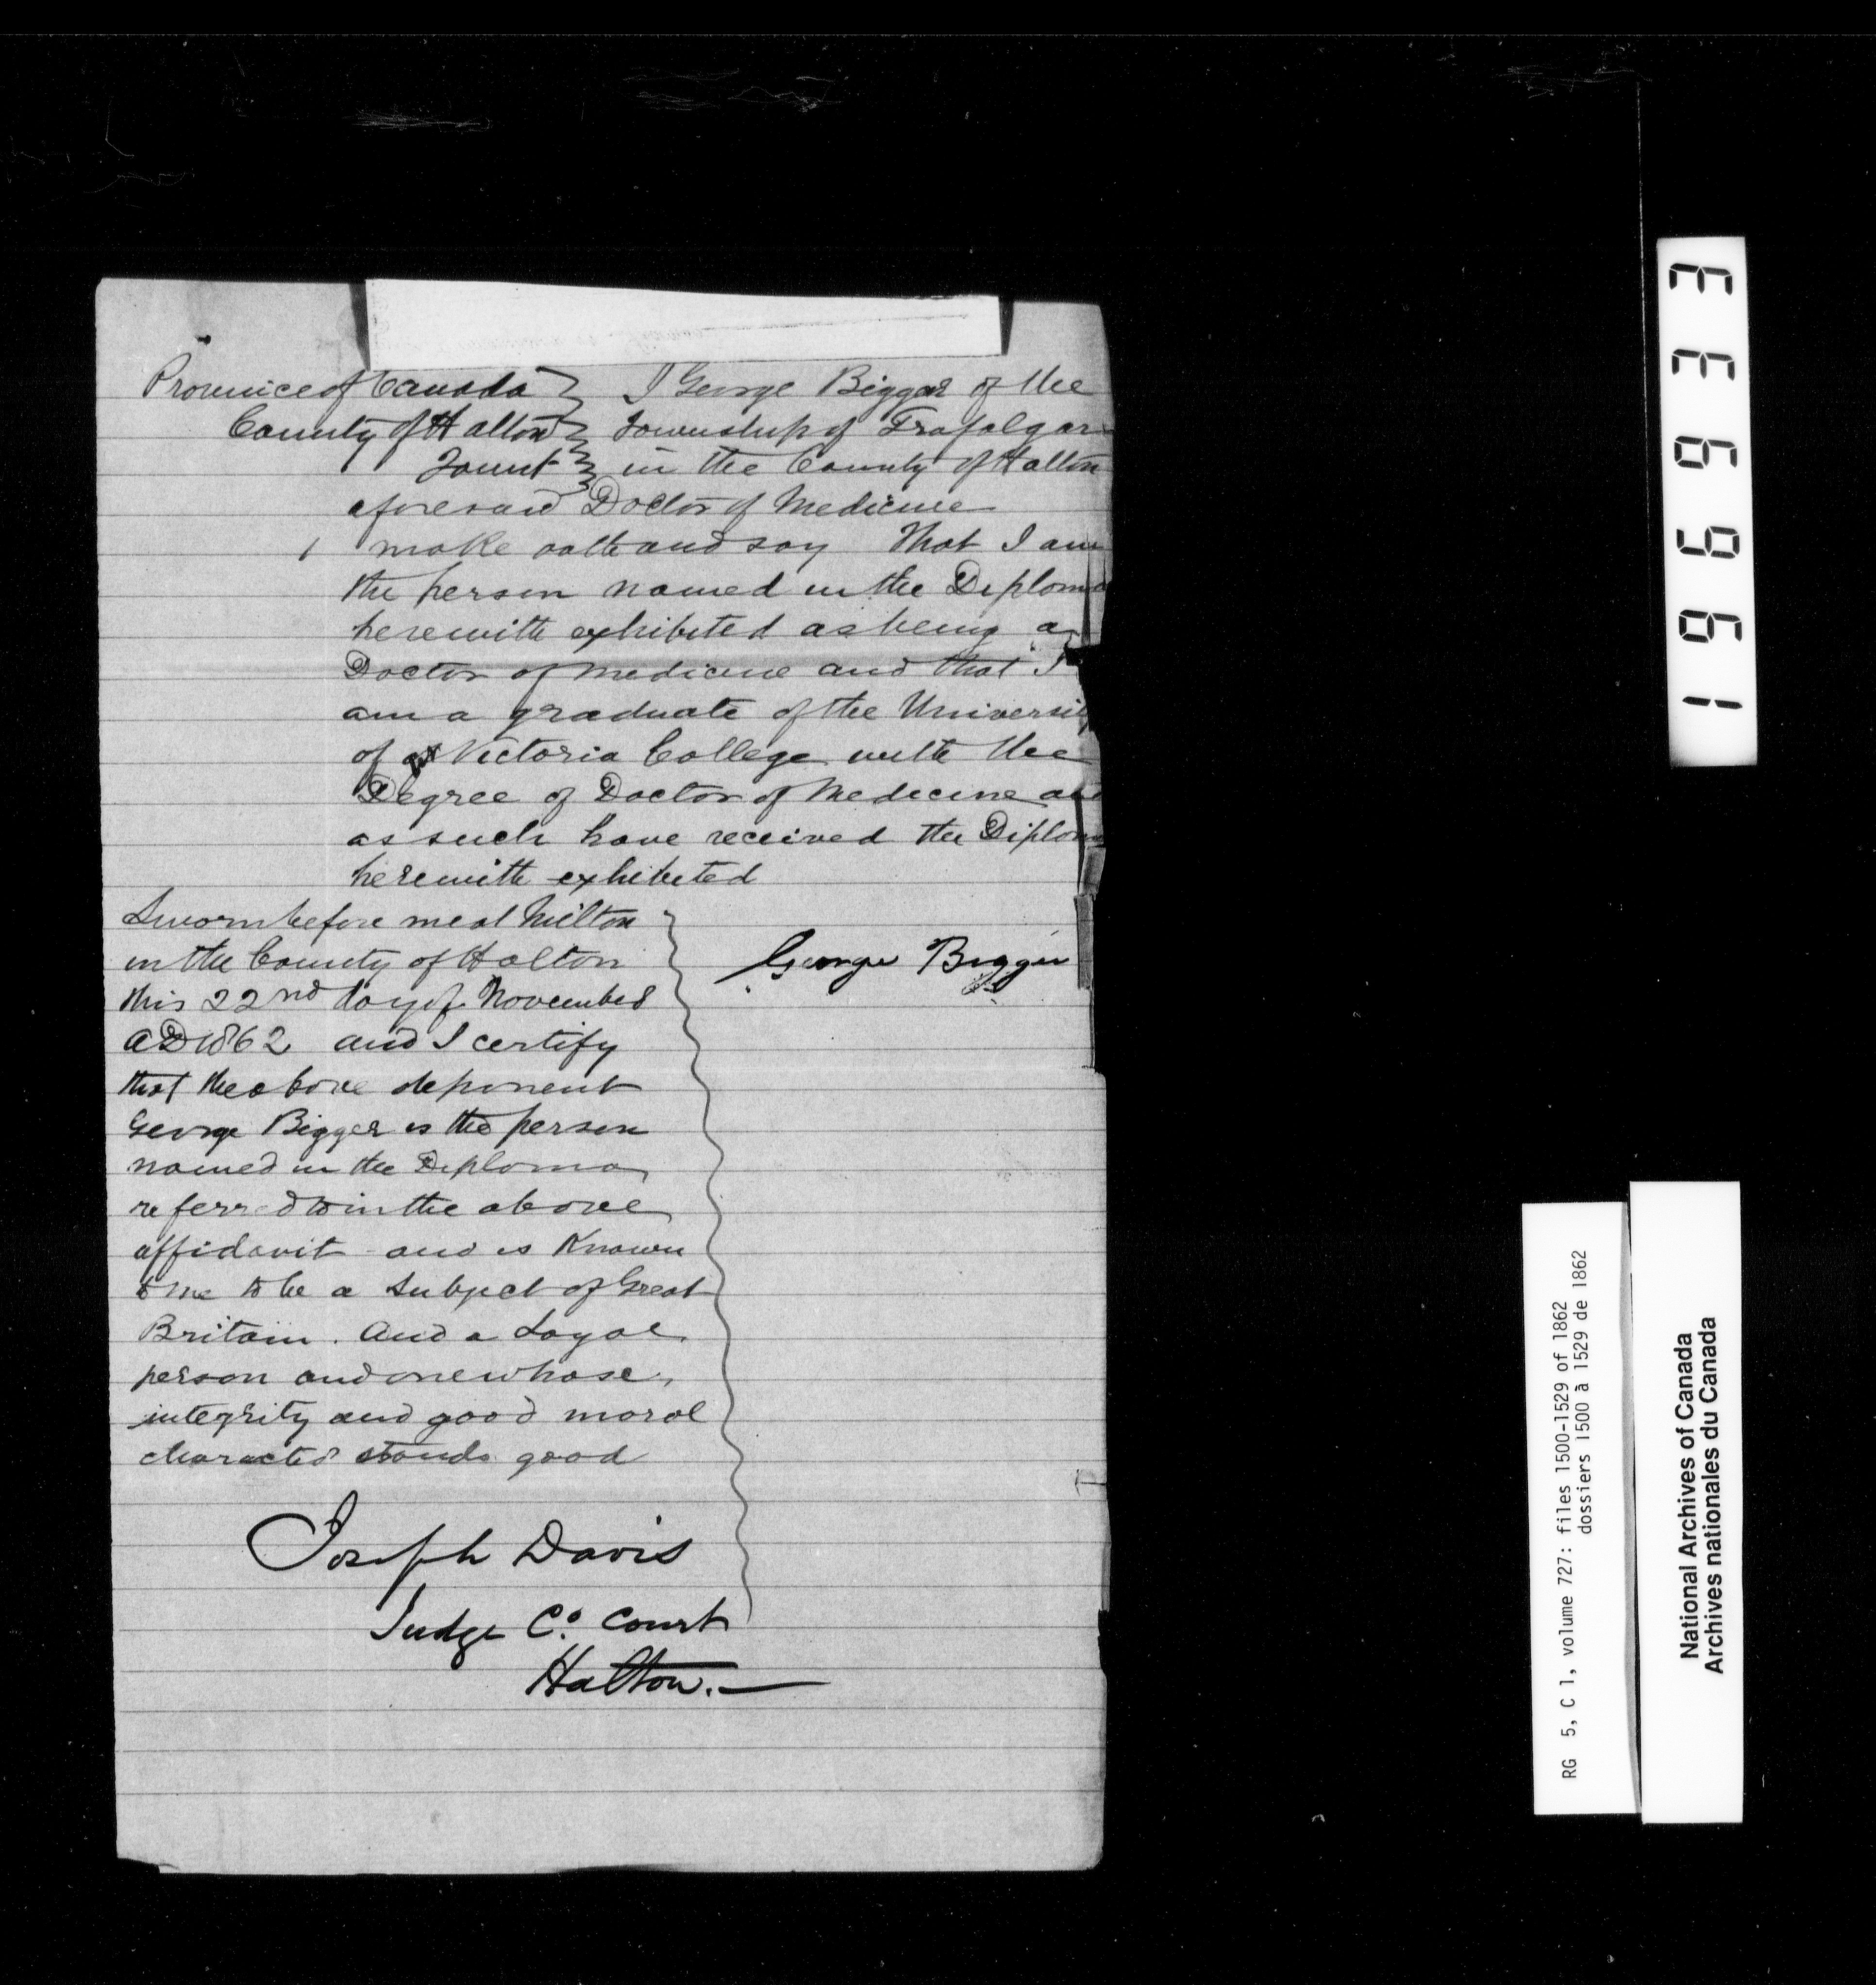 Province of Canada } I George Bigger of the
County of Halton } Township of Trafalgar
} in the County of Halton
aforesaid Doctor of Medicine
1 make oath and say That I am
the person named in the Diploma
herewith exhibited as being a
Doctor of medicine and that I
am a graduate of the Universi
of Victoria College with the
Degree of Doctor of Medecine an
as such have received the Diplom
herewith exhibited
Sworn before me at Milton
in the County of Halton
this 22nd day of November
AD 1862 and I certify
that the above deponent
George Bigger is the person
named in the Diploma
referred to in the above
affidavit and is Known
to me to be a Subject of Great
Britain. And a Loyal
person and one whose
integrity and good moral
character stands good
George Bigger
Joseph Davis
Judge Co. Court
Halton.
196933
RG 5, C 1, volume 727: files 1500-1529 of 1862
dossiers 1500 à 1529 de 1862
National Archives of Canada
Archives nationales du Canada